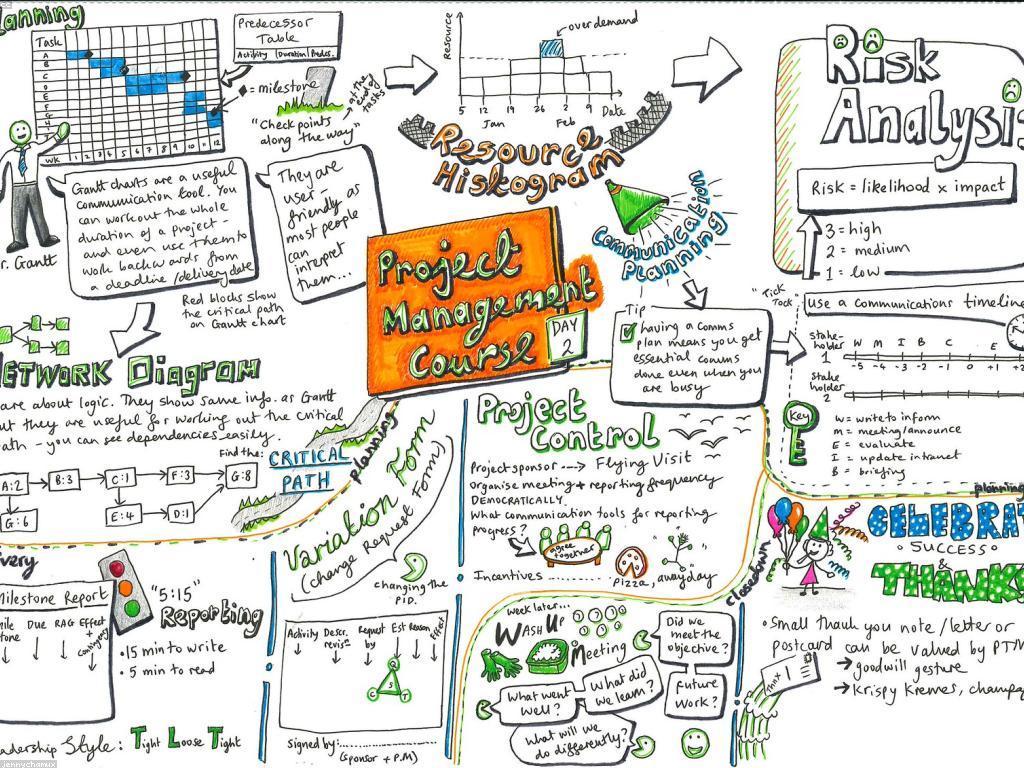 lanning
Task
A
B
C
D
E
F
G
H
WK 1 2 3 4 5 6 7 8 9 10 11 12
Predecessor
Table
Activity | Duration | Predes.
= milestone
"Check points
along the way"
→ at the
end of
tasks
r. Gantt
Gantt charts are a useful
communication tool. You
can work out the whole
duration of a project -
and even use them to
work backwards from
a deadline / delivery date
They are
user -
friendly as
most people
can
interpret
them...
Red blocks show
the critical path
on Gantt chart
Resource
over demand
5 12 19 26 2 9 Date
Jan Feb
Resource
Histogram
Communication
Planning
Risk
Analysis
Risk = likelihood x impact
3 = high
2 = medium
1 = low
Project
Management
Course
DAY
2
Tip
having a comms
plan means you get
essential comms
done even when you
are busy
"Tick
Tock"
use a communications timeline
Stake-
holder
1
W M I B C E
-5 -4 -3 -2 -1 0 +1 +2
Stake
holder
2
Key
W = write to inform
M = meeting/announce
E = evaluate
I = update intranet
B = briefing
planning
ETWORK Diagram
are about logic. They show same info. as Gantt
ut they are useful for working out the critical
ath - you can see dependencies easily.
Find the:
CRITICAL
PATH
A:2 B:3 C:1 F:3 G:8
G:6 E:4 D:1
planning
Variation Form
(change Request Form)
changing the
PID.
Activity Descr. Request Est Reason Effect
revisn by
S
C T
signed by:..............
(sponsor + P.M)
Project
Control
Project sponsor ---> Flying Visit
organise meeting + reporting frequency
DEMOCRATICALLY
What communication tools for reporting
progress?
agree
together
Incentives .............. → pizza, away day
week later...
Wash Up
Meeting
Did we
meet the
objective?
What went
well?
What did
we learn?
Future
work?
What will we
do differently?
closedown
CELEBRAT
• SUCCESS •
&
THANKS
• Small thank you note / letter or
postcard can be valued by PTM
→ goodwill gesture
→ Krispy Kremes, champag
Thnx
very
Milestone Report
Mile
tone
Due RAG Effect
+
contingency
"5:15"
Reporting
• 15 min to write
• 5 min to read
eadership Style: Tight Loose Tight
jennychamux